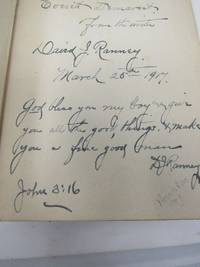 from the writer
David J Ranney
March 25th 1917.
God bless you my boy & give
you all the good things, & make
you a fine good man
DJ Ranney
John 3:16